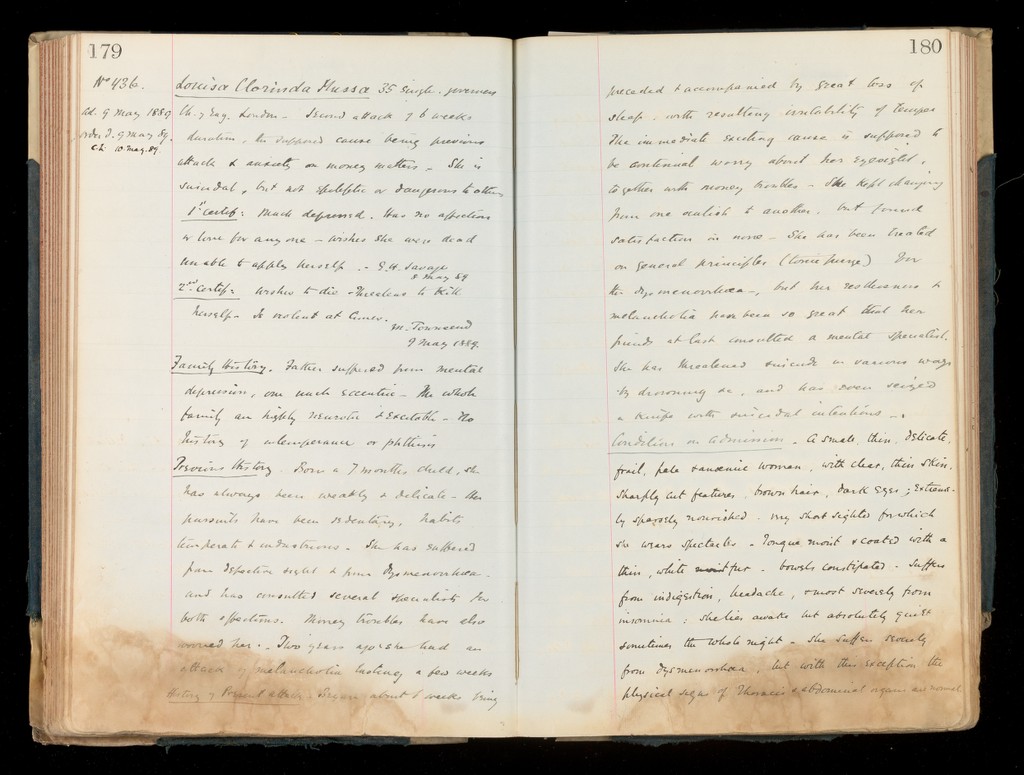 179
No 436.
Ad. 9 May 1889
Order d. 9 May 89.
Ct. 10 May. 89.
Louisa Clorinda Hussa 35 Single. governess
Ch. of Eng. London - Second attack of 6 weeks
duration, the supposed cause being previous
attack & anxiety on money matters - She is
suicidal, but not epileptic or dangerous to others
1st certif: Much depressed. Has no affection
or love for any one - wishes she were dead
Unable to apply herself. - G.H. Savage
8 May 89
2nd certif: Wishes to die - Threatens to kill
herself - Is violent at times.
M. Townsend
9 May 1889.
Family History. Father suffered from mental
depression, one uncle eccentric - The whole
family are highly neurotic & excitable - No
history of intemperance or phthisis
Previous History. Born a 7 months child, she
has always been weakly & delicate - Her
pursuits have been sedentary, habits
temperate & industrious - She has suffered
from defective sight & from dysmenorrhoea -
and has consulted several specialists for
both affections. Money troubles have also
worried her. - Two years ago she had an
attack of melancholia lasting a few weeks
History of Present attack - Began about 6 weeks being
180
preceded & accompanied by great loss of
sleep - with resulting irritability of temper
The immediate exciting cause is supposed to
be continual worry about her eyesight,
together with money troubles - She kept changing
from one oculist to another, but found
satisfaction in none - She has been treated
on general principles (tonic purge) for
the dysmenorrhoea -, but her restlessness &
melancholia have been so great that her
friends at last consulted a mental specialist.
She has threatened suicide in various ways
by drowning &c, and has even seized
a knife with suicidal intentions -.
Condition on Admission. A small, thin, delicate,
frail, pale & anaemic woman, with clear, thin skin,
sharply cut features, brown hair, dark eyes; extreme-
ly sparely nourished. Very short sighted for which
she wears spectacles - Tongue moist & coated with a
thin, white moist fur - bowels constipated. Suffers
from indigestion, headache, & most severely from
insomnia: she lies awake but absolutely quiet
sometimes the whole night - She suffers severely
from dysmenorrhoea, but with this exception the
physical signs of thoracic & abdominal organs are normal